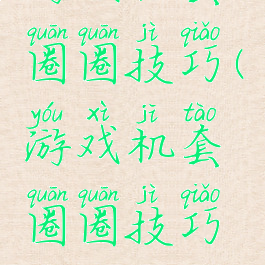 quān quān jì qiǎo
圈圈技巧(
yóu xì jī tào
游戏机套
quān quān jì qiǎo
圈圈技巧